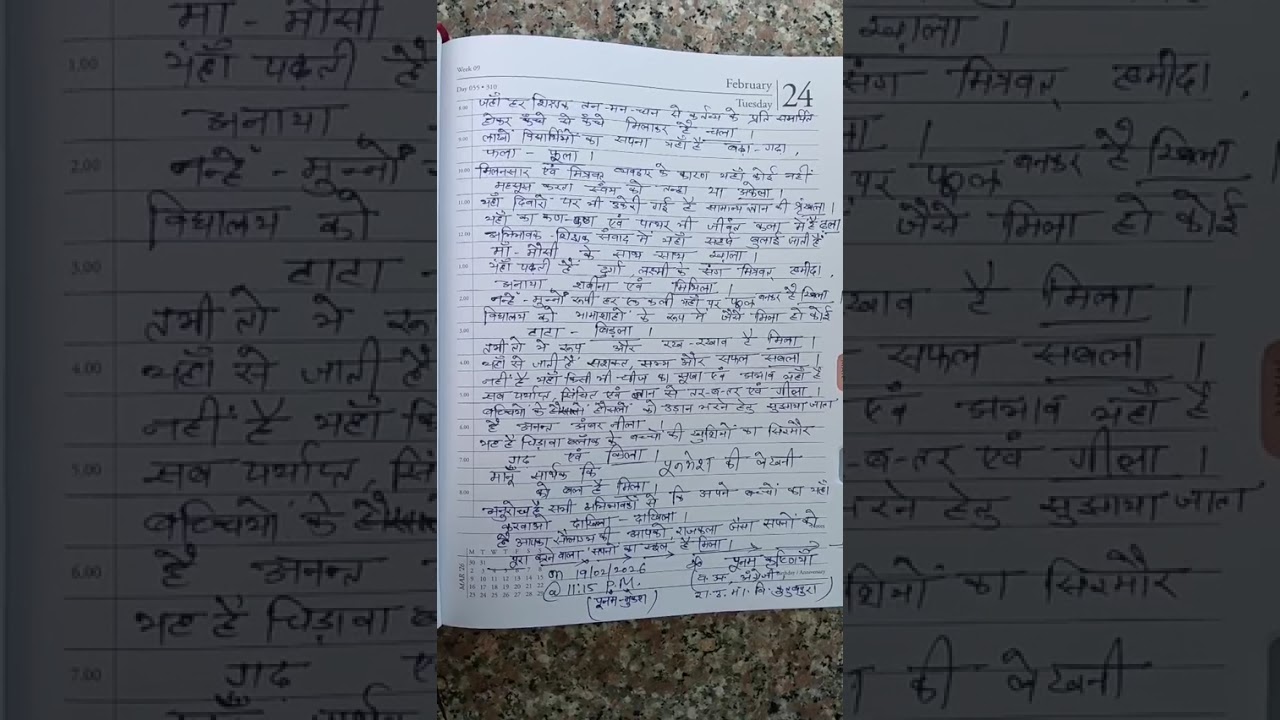 Week 09
Day 055 • 310
February
Tuesday 24
जहाँ हर शिक्षक तन-मन-धन से कर्तव्य के प्रति समर्पित
होकर कंधे से कंधे मिलाकर है चला ।
लाखों विद्यार्थियों का सपना यहाँ है बढ़ा-गढ़ा,
फला - फूला ।
मिलनसार एवं मित्रवत् व्यवहार के कारण यहाँ कोई नहीं
महसूस करता स्वयं को तन्हा या अकेला ।
यहाँ दिवारों पर भी उकेरी गई है सामान्य ज्ञान की श्रृंखला ।
यहाँ का कण-कण एवं पत्थर भी जीवंत कला में है ढला
अभिभावक-शिक्षक संवाद में यहाँ सहर्ष बुलाई जाती हैं
माँ - मौसी के साथ साथ खाला ।
यहाँ पढ़ती हैं दुर्गा लक्ष्मी के संग मित्रवत् हमीदा,
अनाया शबीना एवं मिथिला ।
नन्हें-मुन्नों रूपी हर एक कली यहाँ पर फूल बनकर है खिला
विद्यालय को भामाशाहों के रूप में जैसे मिला हो कोई
टाटा - बिड़ला ।
तभी तो ये रूप और रख-रखाव है मिला ।
यहाँ से जाती हैं सशक्त, सभ्य और सफल सबला ।
नहीं है यहाँ किसी भी चीज का सूखा एवं अभाव यहाँ है
सब पर्याप्त, सिंचित एवं ज्ञान से तर-ब-तर एवं गीला ।
बच्चियों के हौसलों को उड़ान भरने हेतु सुझाया जाता
है अनन्त अम्बर नीला ।
यह है चिड़ावा ब्लॉक के बच्चों की खुशियों का सिरमौर
गढ़ एवं किला ।
मानूँ सार्थक कि पूनमेश की लेखनी
को बल है मिला ।
अनुरोध है सभी अभिभावकों से कि अपने बच्चों का यहाँ
करवाओ दाखिला - दाखिला ।
आपको राजकला जैसा सपनों को
पूरा करने वाला, सपनों का महल है मिला ।
on 19/02/2026
@ 11:15 P.M.
पूनम
व.अ. अंग्रेजी
रा.उ.मा.वि.
MAR 26
M T W T F S S